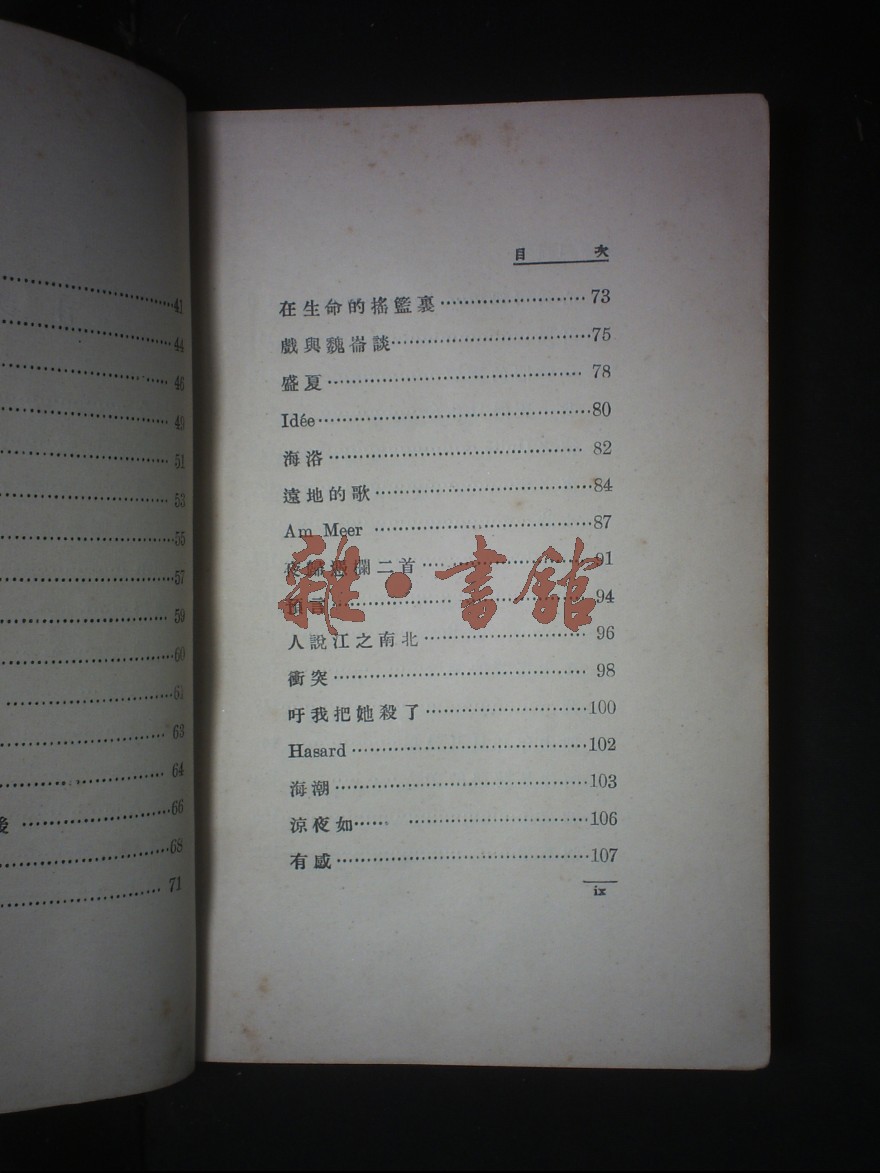 41
44
46
49
51
53
55
57
59
60
61
63
64
後 66
68
71
目 次
在生命的搖籃裏 73
戲與魏崙談 75
盛夏 78
Idée 80
海浴 82
遠地的歌 84
Am Meer 87
夜歸憑欄二首 91
預言 94
人說江之南北 96
衝突 98
吁我把她殺了 100
Hasard 102
海潮 103
涼夜如…… 106
有感 107
ix
雜·書館